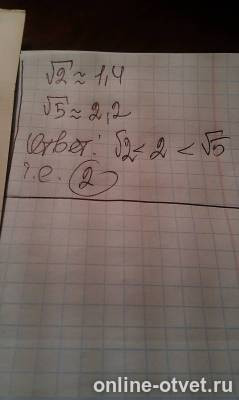 √2 ≈ 1,4
√5 ≈ 2,2
Ответ: √2 < 2 < √5
т.е. 2
online-otvet.ru